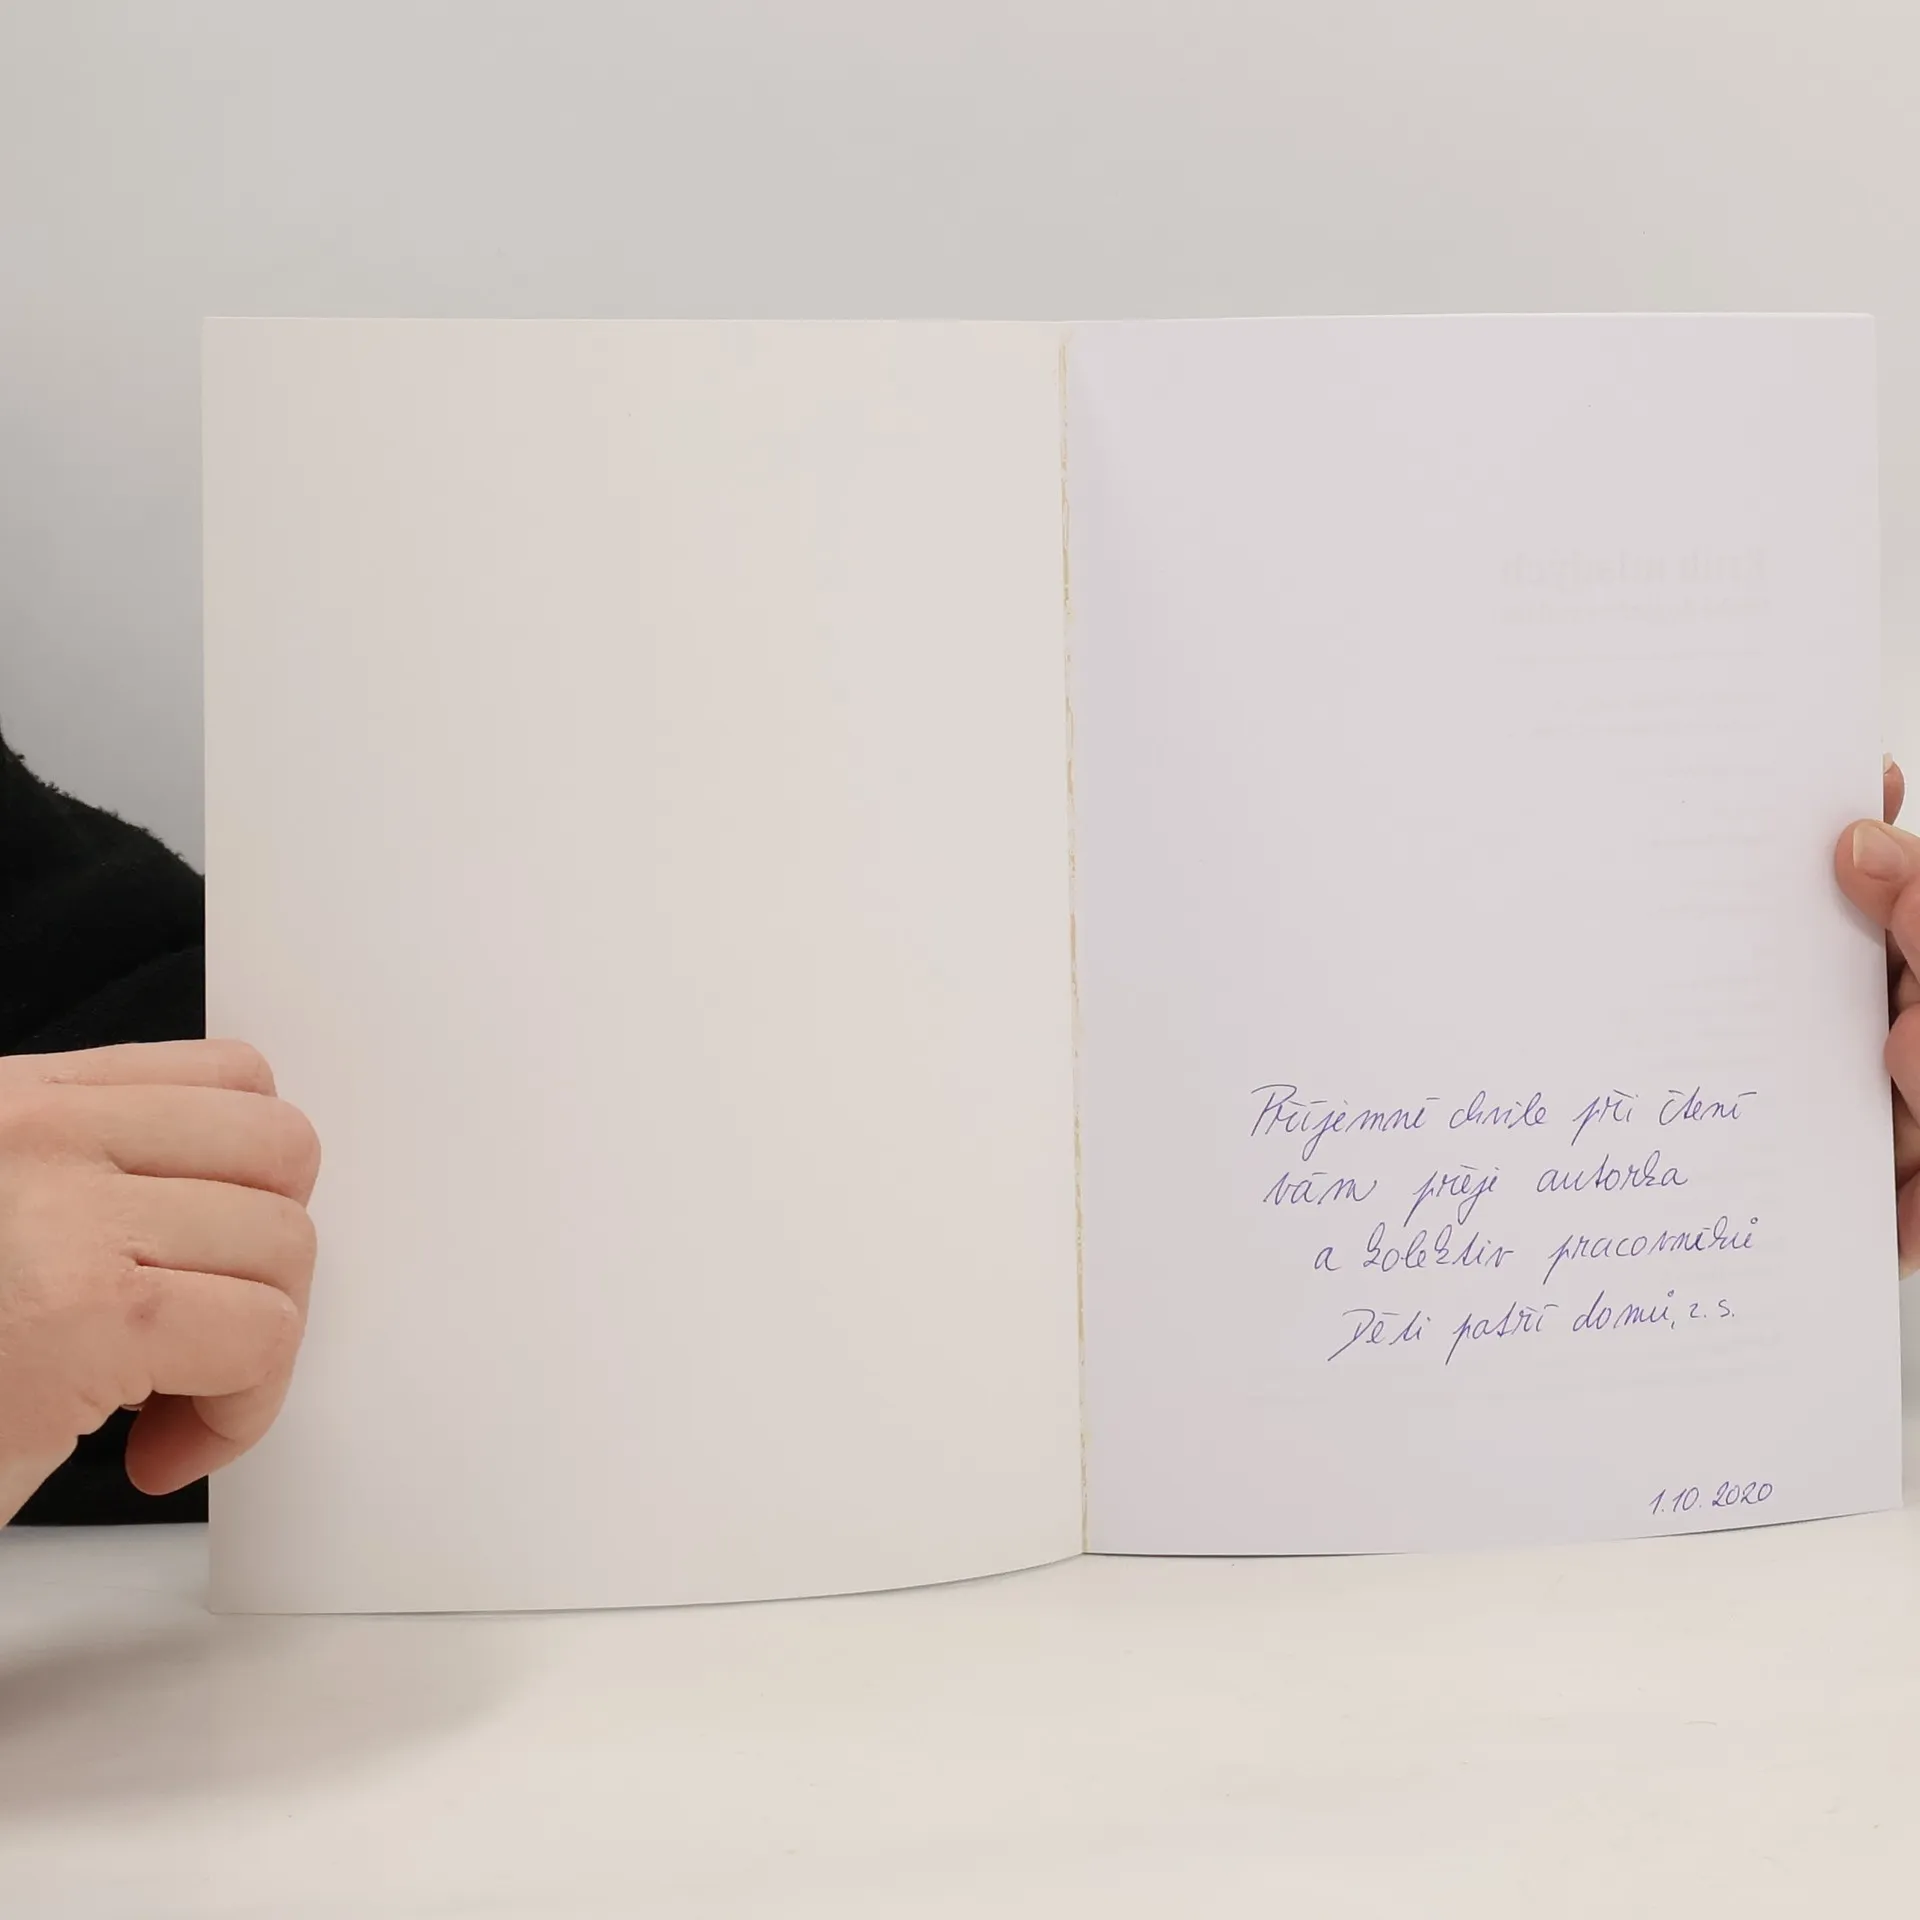 Příjemné chvíle při čtení
vám přeje autorka
a kolektiv pracovníků
Děti patří domů, z. s.
1.10.2020